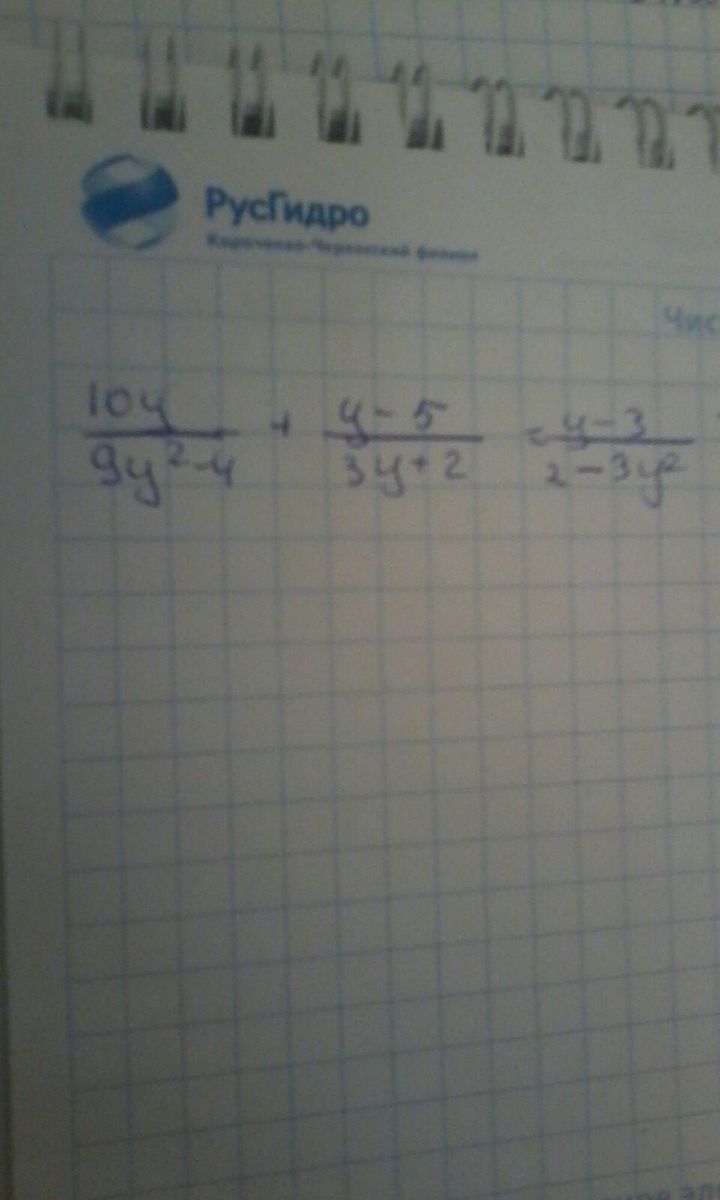 РусГидро
Карачаево-Черкесский филиал
Чис
10y/9y²-4 + y-5/3y+2 = y-3/2-3y²